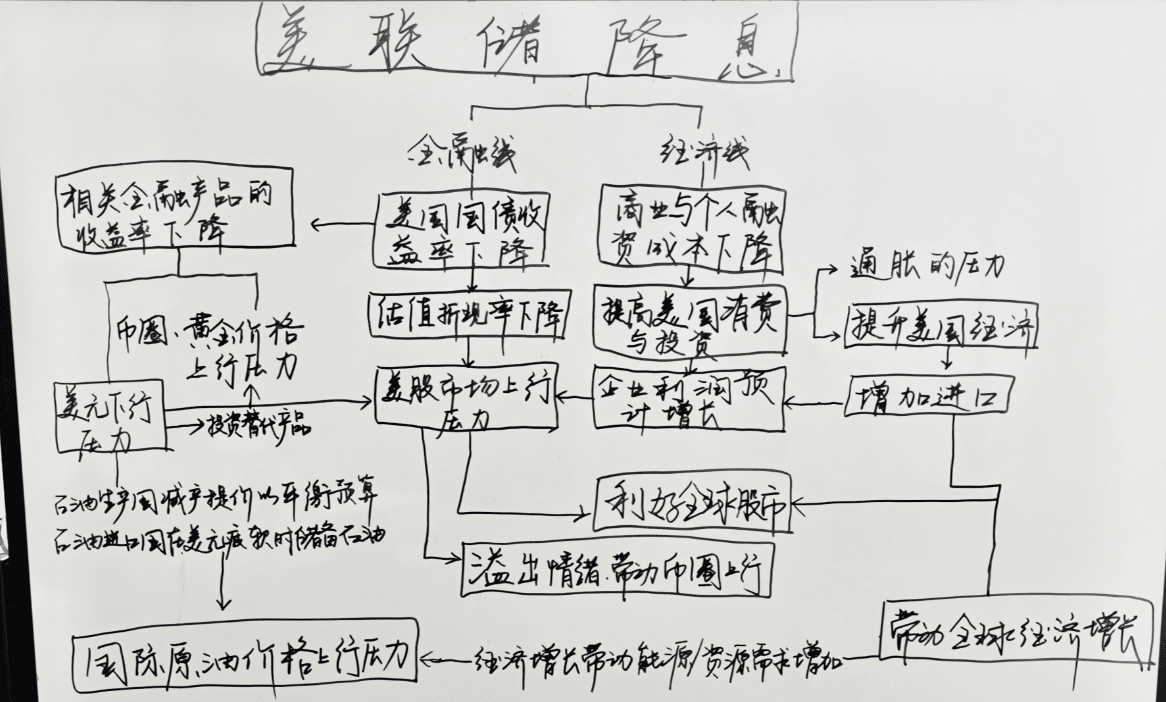 美联储降息
金融线
经济线
相关金融产品的
收益率下降
美国国债收
益率下降
商业与个人融
资成本下降
通胀的压力
估值折现率下降
提高美国消费
与投资
提升美国经济
币圈、黄金价格
上行压力
美元下行
压力
投资替代产品
美股市场上行
压力
企业利润预
计增长
增加进口
石油生产国减产提价以平衡预算
石油进口国在美元疲软时储备石油
利好全球股市
溢出情绪、带动币圈上行
带动全球经济增长
国际原油价格上行压力
经济增长带动能源/资源需求增加